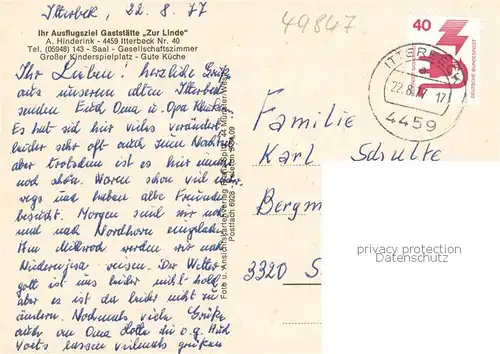 Itterbeck, 22. 8. 77
Ihr Ausflugsziel Gaststätte „Zur Linde"
A. Hinderink - 4459 Itterbeck Nr. 40
Tel. (05948) 143 - Saal - Gesellschaftszimmer
Großer Kinderspielplatz - Gute Küche
Ihr Lieben! herzliche Grüße
aus unserem alten Itterbeck
senden Euch Oma u. Opa
Es hat sich hier vieles verändert
leider sehr oft auch zum Nachteil
aber trotzdem ist es hier immer
noch schön. Waren schon viel unter-
wegs und haben alte Freunde
besucht. Morgen sind wir
nach Nordhorn eingeladen.
Am Mittwoch werden wir nach
reisen. Der Wetter-
gott ist uns leider nicht hold
aber es ist da leider nicht zu
ändern. Nochmals viele Grüße
auch an Oma Lotte
lassen vielmals grüßen
49847
40
DEUTSCHE BUNDESPOST
ITTERBECK
a
22.8.77 17
4459
Familie
Karl Schulte
Bergm
3320 S
privacy protection
Datenschutz